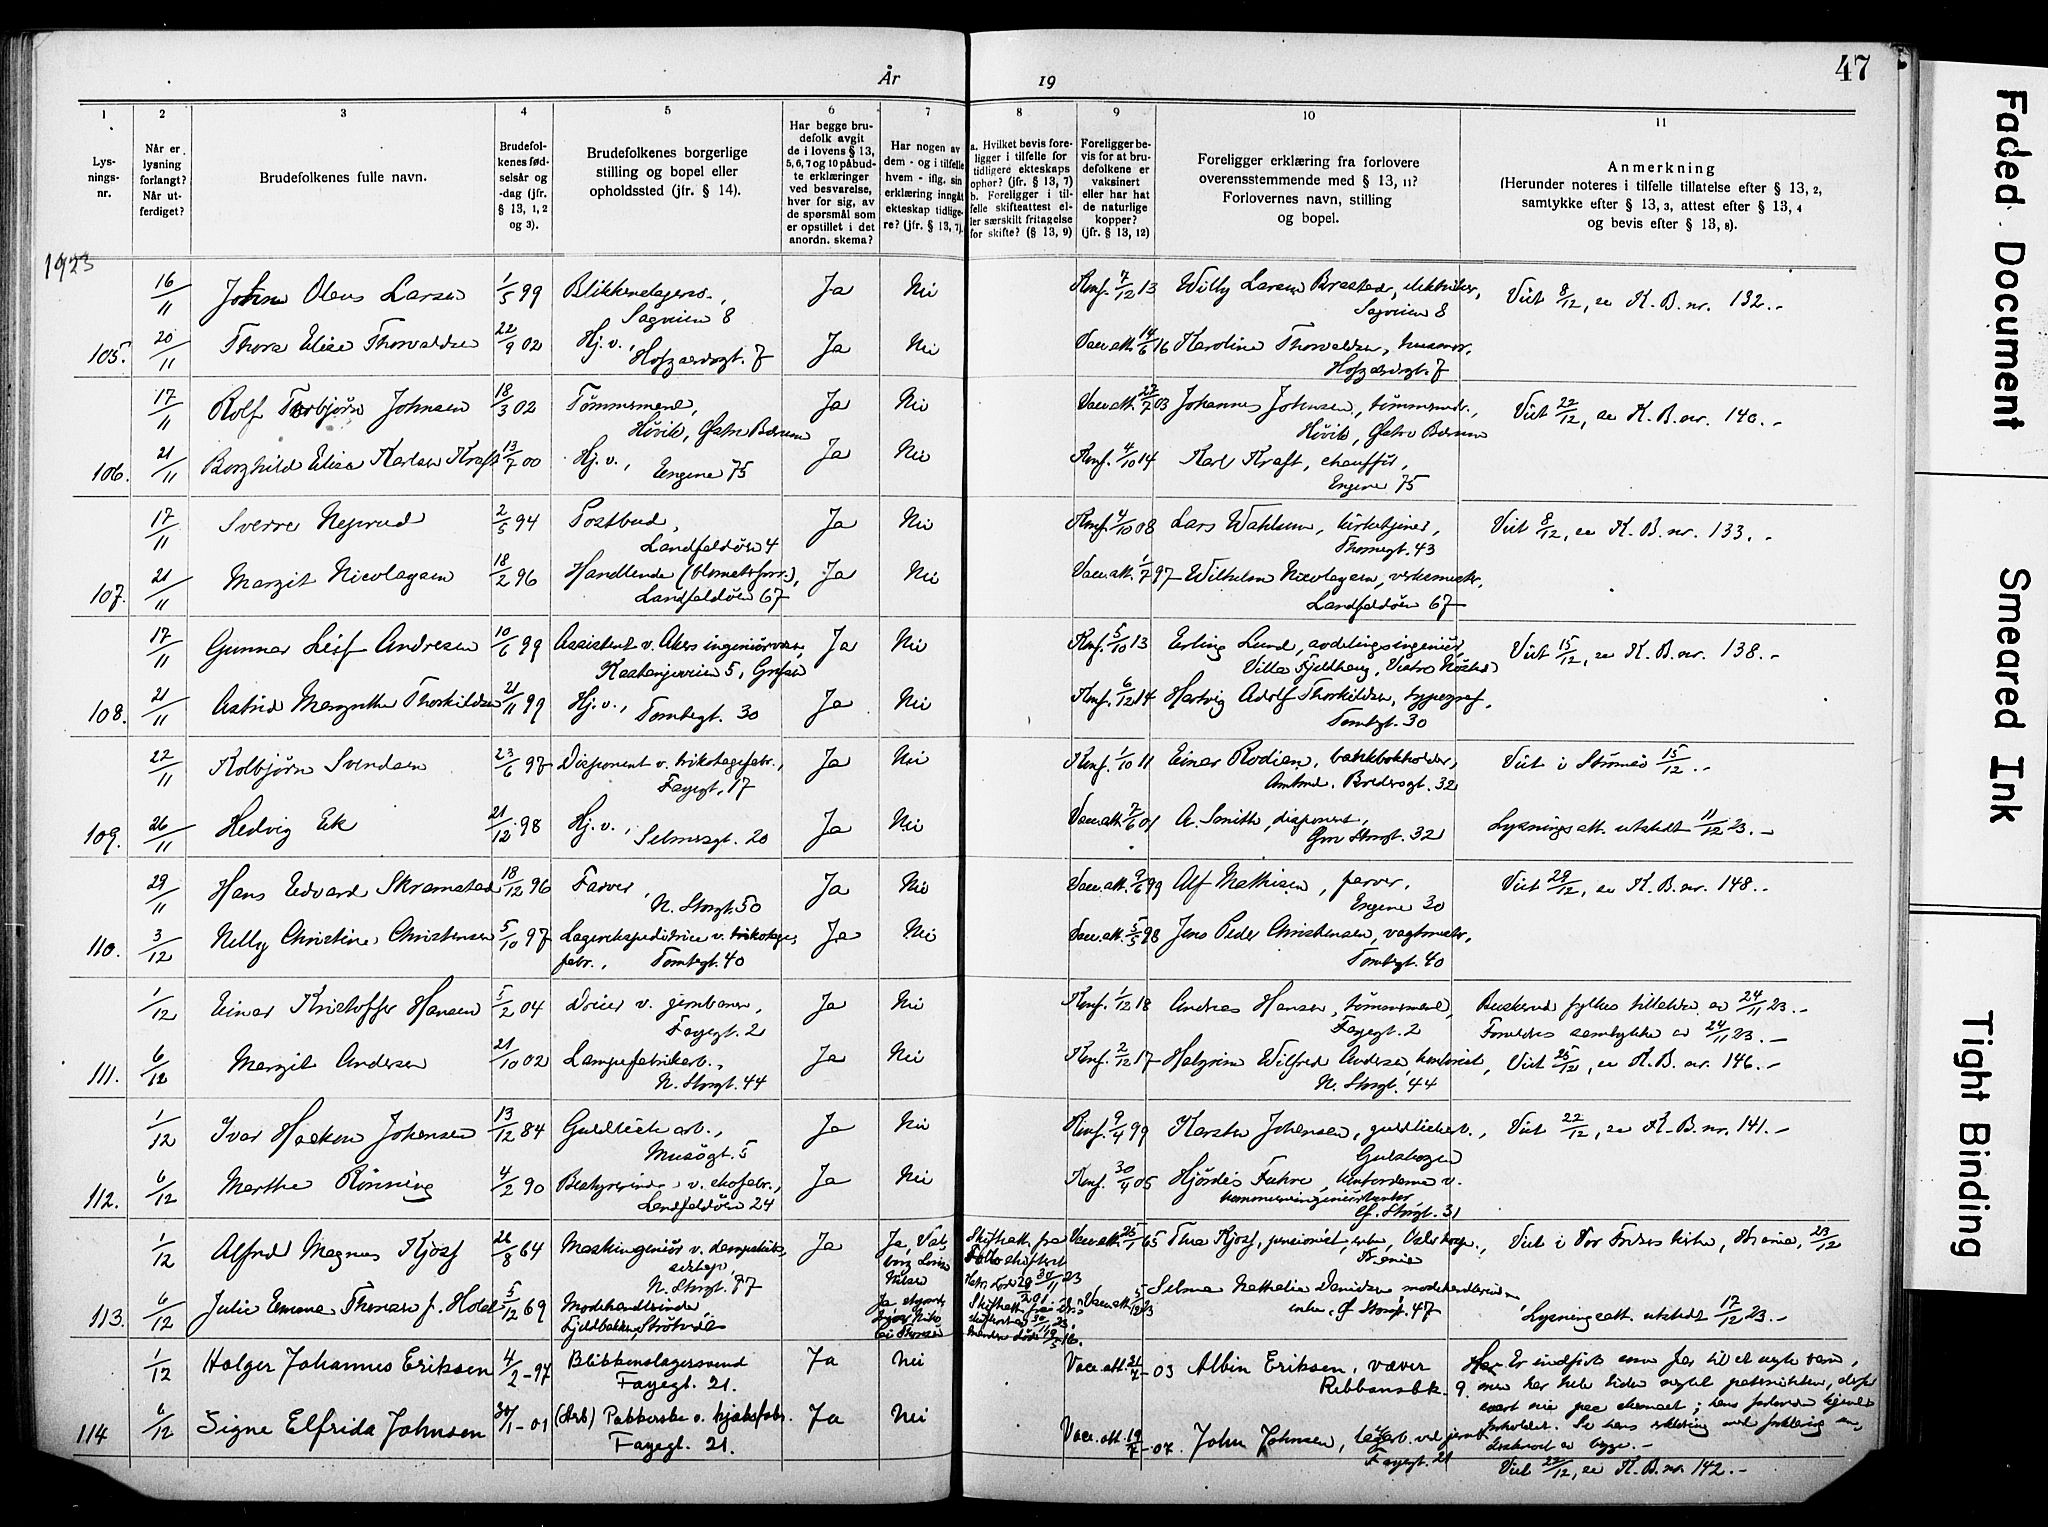 År 19
47
1 2 3 4 5 6 7 8 9 10 11
Lys-
nings-
nr.
Når er
lysning
forlangt?
Når ut-
ferdiget?
Brudefolkenes fulle navn.
Brudefol-
kenes fød-
selsår og
-dag (jfr.
§ 13, 1, 2
og 3).
Brudefolkenes borgerlige
stilling og bopel eller
opholdssted (jfr. § 14).
Har begge bru-
defolk avgit
de i lovens § 13,
5, 6, 7 og 10 påbud-
te erklæringer
ved besvarelse,
hver for sig, av
de spørsmål som
er opstillet i det
anordn. skema?
Har nogen av
dem - og i tilfelle
hvem - iflg. sin
erklæring inngått
ekteskap tidlige-
re? (jfr. § 13, 7).
a. Hvilket bevis fore-
ligger i tilfelle for
tidligere ekteskaps
ophør? (jfr. § 13, 7)
b. Foreligger i til-
felle skifteattest el-
ler særskilt fritagelse
for skifte? (§ 13, 9)
Foreligger be-
vis for at bru-
defolkene er
vaksinert
eller har hat
de naturlige
kopper?
(jfr. § 13, 12)
Foreligger erklæring fra forlovere
overensstemmende med § 13, 11?
Forlovernes navn, stilling
og bopel.
Anmerkning
(Herunder noteres i tilfelle tillatelse efter § 13, 2,
samtykke efter § 13, 3, attest efter § 13, 4
og bevis efter § 13, 8).
1923
16/11 John Olaus Larsen 1/5 99 Blikkenslagersv., Ja Nei Konf. 7/12 13 Willy Larsen Brastad, elektriker, Viet 8/12, se K.B. nr. 132.-
Sagveien 8 Sagveien 8
105. 20/11 Thora Elise Thorvaldsen 22/9 02 Hj. v., Ja Nei Vacc.att. 14/6 16 Karoline Thorvaldsen, husmor,
Hofgaardsgt. 7 Hofgaardsgt. 7
17/11 Rolf Torbjørn Johnsen 18/3 02 Tømmermand, Ja Nei Vacc.att. 27/7 03 Johannes Johnsen, tømmermd., Viet 22/12, se K.B. nr. 140.-
Høvik, Østre Bærum Høvik, Østre Bærum
106. 21/11 Borghild Elise Karlsen Kraft 13/7 00 Hj. v., Ja Nei Konf. 4/10 14 Karl Kraft, chauffør,
Engene 75 Engene 75
17/11 Sverre Nejsrud 2/5 94 Postbud, Ja Nei Konf. 4/10 08 Lars Wahlum, kirketjener, Viet 8/12, se K.B. nr. 133.-
Landfaldøen 4 Thornegt. 43
107. 21/11 Margit Nicolaysen 18/2 96 Handlende (blomsterforr.), Ja Nei Vacc.att. 1/7 97 Wilhelm Nicolaysen, verksmestr.,
Landfaldøen 67 Landfaldøen 67
17/11 Gunnar Leif Andresen 10/6 99 Assistent v. Akers ingeniørvesen, Ja Nei Konf. 5/10 13 Erling Lund, avdelingsingeniør, Viet 15/12, se K.B. nr. 138.-
Kastanjeveien 5, Grefsen Villa Fjeldhaug,
108. 21/11 Astrid Margrethe Thorkildsen 21/11 99 Hj. v., Ja Nei Konf. 6/12 14 Hartvig Adolf Thorkildsen, typograf,
Tomtegt. 30 Tomtegt. 30
22/11 Kolbjørn Svendsen 23/6 97 Disponent v. trikotagefabr., Ja Nei Konf. 1/10 11 Einar Rodian, bankbokholder, Viet i Strømsø 15/12.-
Fayegt. 17 Amtmd. Bredersgt. 32
109. 26/11 Hedvig Ek 21/12 98 Hj. v., Ja Nei Vacc.att. 7/6 01 A. Smith, disponent, Lysningsatt. utstedt 11/12 23.-
Selmersgt. 20 Storgt. 32
29/11 Hans Edvard Skramstad 18/12 96 Farver, Ja Nei Vacc.att. 9/6 99 Alf Mathisen, farver, Viet 29/12, se K.B. nr. 148.-
N. Storgt. 50 Engene 30
110. 3/12 Nelly Christine Christensen 5/10 97 Lagerekspeditrice v. trikotage- Ja Nei Vacc.att. 5/5 98 Jens Peder Christensen, vagtmestr.,
fabr., Tomtegt. 40 Tomtegt. 40
1/12 Einar Kristoffer Hansen 5/2 04 Dreier v. jernbanen, Ja Nei Konf. 1/12 18 Andreas Hansen, tømmermand, Buskerud fylkes tillatelse av 24/11 23.-
Fayegt. 2 Fayegt. 2 Foreldres samtykke av 24/11 23.-
111. 6/12 Margit Andersen 21/10 02 Lampefabrikarb., Ja Nei Konf. 2/12 17 Halgrim Wilfred Andersen, kontorist, Viet 25/12, se K.B. nr. 146.-
N. Storgt. 44 N. Storgt. 44
1/12 Ivar Haakon Johansen 13/12 84 Guldlistearb., Ja Nei Konf. 9/4 99 Karsten Johansen, guldlistearb., Viet 22/12, se K.B. nr. 141.-
Musøgt. 5 Gulskogen
112. 6/12 Marthe Rønning 4/2 90 Bestyrerinde v. skofabr., Ja Nei Konf. 30/4 05 Hjørdis Fahre, kontordame v.
Landfaldøen 24 kommuneingeniørkontor,
Storgt. 31
1/12 Alfred Magnus Kjos 26/8 64 Maskingeniør v. dampskibs- Ja Ja, Val- Skifteatt. fra Vacc.att. 25/1 65 Thea Kjos, pensionist, enke, Viet i Vor Frelsers kirke, Kr.ania, 23/12
selskap, borg Lovise Follo skifterett Kr.ania
N. Storgt. 97 Nilsen 30/11 23
113. 6/12 Julie Emma Thoresen f. Holst 5/12 69 Modehandlerinde, Ja, Skifteatt. fra Vacc.att. Selma Nathalia Danielsen modehandlerinde
Fjeldbakken, enke, Ø. Storgt. 47 Lysningsatt. utstedt 17/12 23.-
1/12 Holger Johannes Eriksen 4/2-97 Blikkenslagersvend Ja Nei Vacc.att. 21/7-03 Albin Eriksen, væver Er indført som far til et uegte barn,
Fayegt. 21. Ribbansbk. 9. men har hele tiden negtet paterniteten,
114 6/12 Signe Elfrida Johnsen 30/1-01 (Arb) Pakkerske v. kjeksfabr. Ja Nei Vacc.att. 19/7-07. John Johnsen, ved jernb.
Fayegt. 21. Fayegt. 21
Viet 22/12, se K.B. nr. 142.-
Faded Document
Smeared Ink
Tight Binding